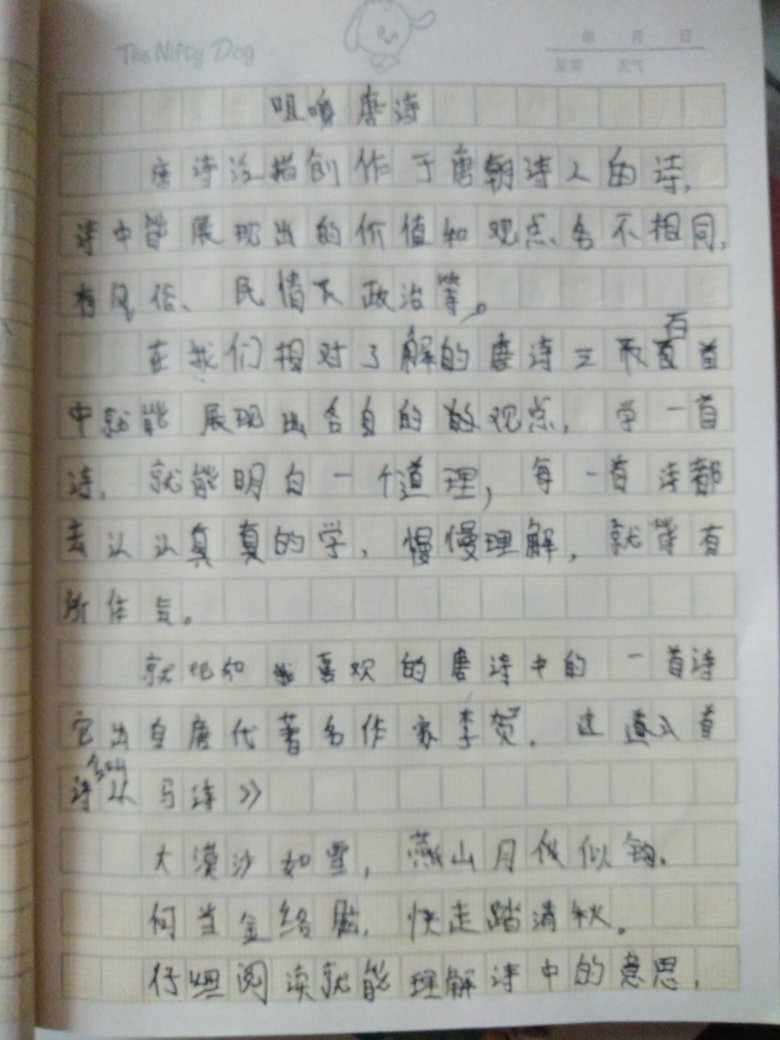 The Nifty Dog
年 月 日
星期 天气
咀嚼唐诗
唐诗泛指创作于唐朝诗人的诗,
诗中能展现出的价值和观点各不相同,
有风俗、民情不政治等。
在我们相对了解的唐诗三百首
中就能展现出各自的观点,学一首
诗,就能明白一个道理,每一首诗都
去认认真真的学,慢慢理解,就能有
所作
就比如我喜欢的唐诗中的一首诗
它出自唐代著名作家李贺.这首
诗名叫《马诗》
大漠沙如雪,燕山月似钩.
何当金络脑,快走踏清秋。
仔细阅读就能理解诗中的意思,